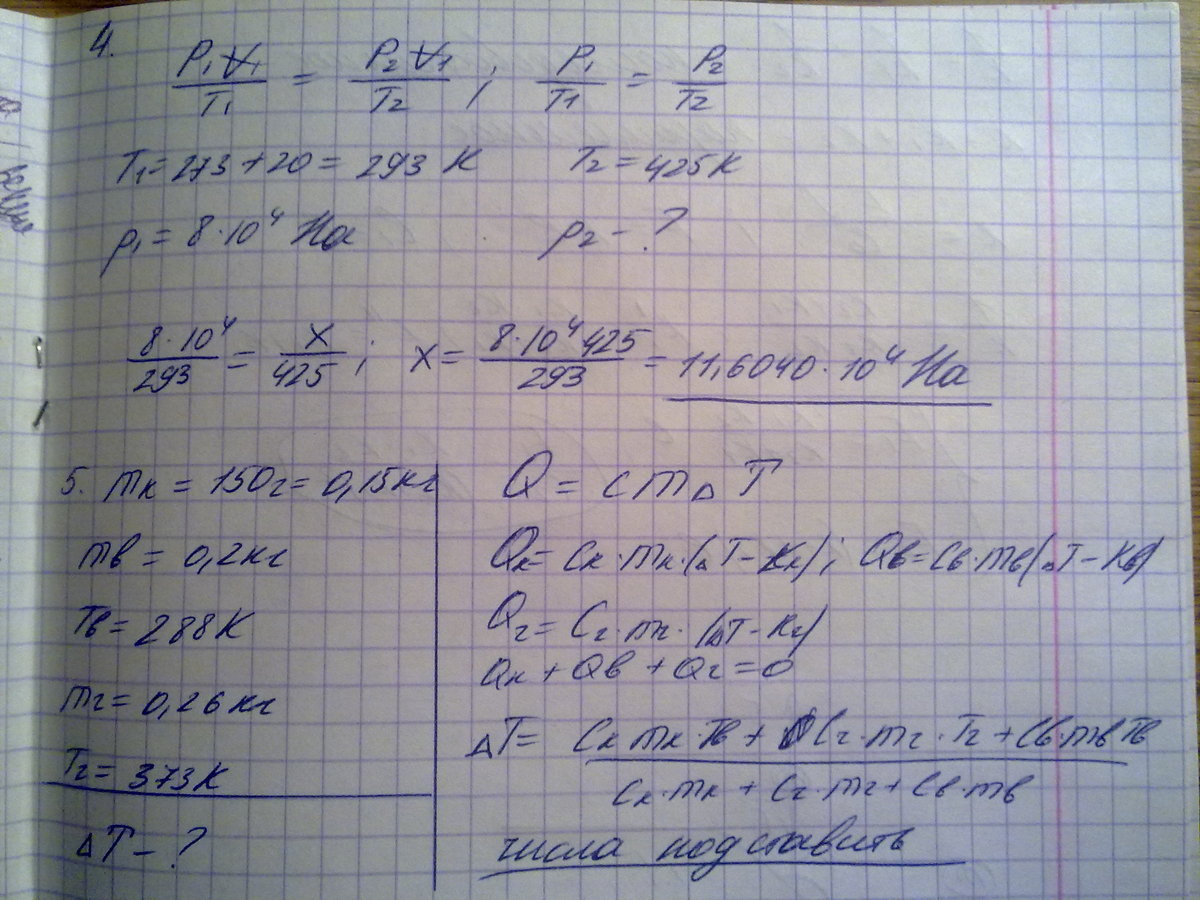 4.
P₁V₁/T₁ = P₂V₁/T₂ ; P₁/T₁ = P₂/T₂
T₁ = 273 + 20 = 293 K T₂ = 425K
p₁ = 8·10⁴ Па p₂ - ?
8·10⁴/293 = X/425 ; X = 8·10⁴ 425/293 = 11,6040·10⁴ Па
5. mк = 150г = 0,15кг
mв = 0,2кг
Tв = 288K
mг = 0,26кг
Tг = 373K
ΔT - ?
Q = cmΔT
Qк = Cк·mк·(ΔT - Kк) ; Qв = Cв·mв(ΔT - Kв)
Qг = Cг·mг·(ΔT - Kг)
Qк + Qв + Qг = 0
ΔT = Cк mк·Tв + Cг·mг·Tг + Cв·mв Tв / Cк·mк + Cг·mг + Cв·mв
числа подставить